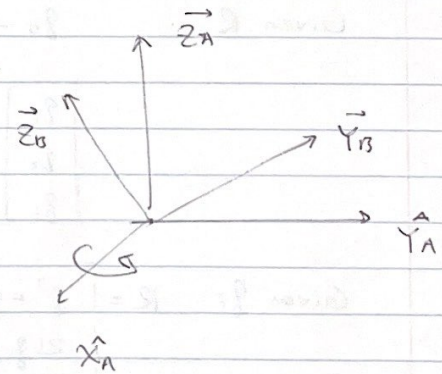 $\vec{Z_A}$
$\vec{Z_B}$
$\vec{Y_B}$
$\hat{Y_A}$
$\hat{X_A}$